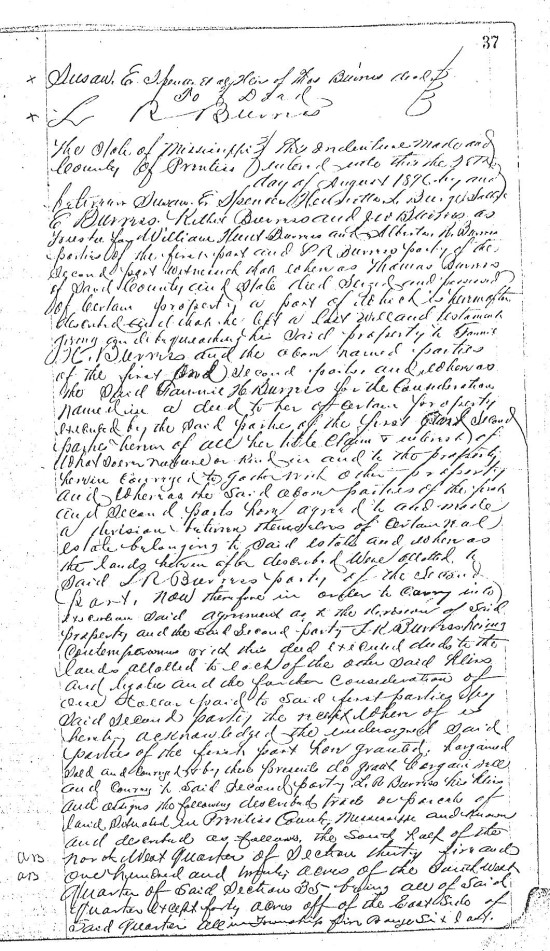 37
Susan. E. Spencer et al Heirs of Thos Burress decd
To Deed
L R Burress
The State of Mississippi This Indenture made and
County of Prentiss entered into this the 28th
day of August 1876 by and
between Susan. E. Spencer
E Burress. Kittie Burress and Jno Burress, as
Trustee for William Hunt Burress and Alberta N. Burress
parties of the first part and L R Burress party of the
Second part Witnesseth that whereas Thomas Burress
of Said County and State died Seized and possessed
of Certain property a part of which is hereinafter
described and that he left a last will and testament
giving and bequeathing his Said property to Fannie
H. Burress and the above named parties
of the first and Second parts and whereas
the Said Fannie H Burress for the Consideration
named in a deed to her of Certain property
executed by the Said parties of the first and Second
parties herein of all her title Claim & interest of
what soever nature or Kind in and to the property
herein Conveyed to gether with other property
and Whereas the Said above parties of the first
and Second parts have agreed to and made
a division between themselves of Certain real
estate belonging to Said estate and whereas
the lands herein after described were allotted to
Said L R Burress party of the Second
part, Now therefore in order to Carry into
execution Said agreement as to the division of Said
property and the Said Second party L. R Burress having
Contemporaneous with this deed executed deeds to the
lands allotted to each of the other Said Heirs
and legatees and the further Consideration of
one Dollar paid to Said first parties by
Said Second party the receipt whereof is
hereby acknowledged the undersigned Said
parties of the first part have granted, bargained
Sold and Conveyed & by these presents do grant bargain sell
and Convey to Said Second party L. R Burress his heirs
and assigns the following described tracts or parcels of
land Situated in Prentiss County Mississippi and Known
and described as follows, the South half of the
North West Quarter of Section thirty five and
one hundred and twenty acres of the South West
Quarter of Said Section 35 being all of Said
Quarter except forty acres off of the East Side of
Said Quarter all in Township five Range Six East.